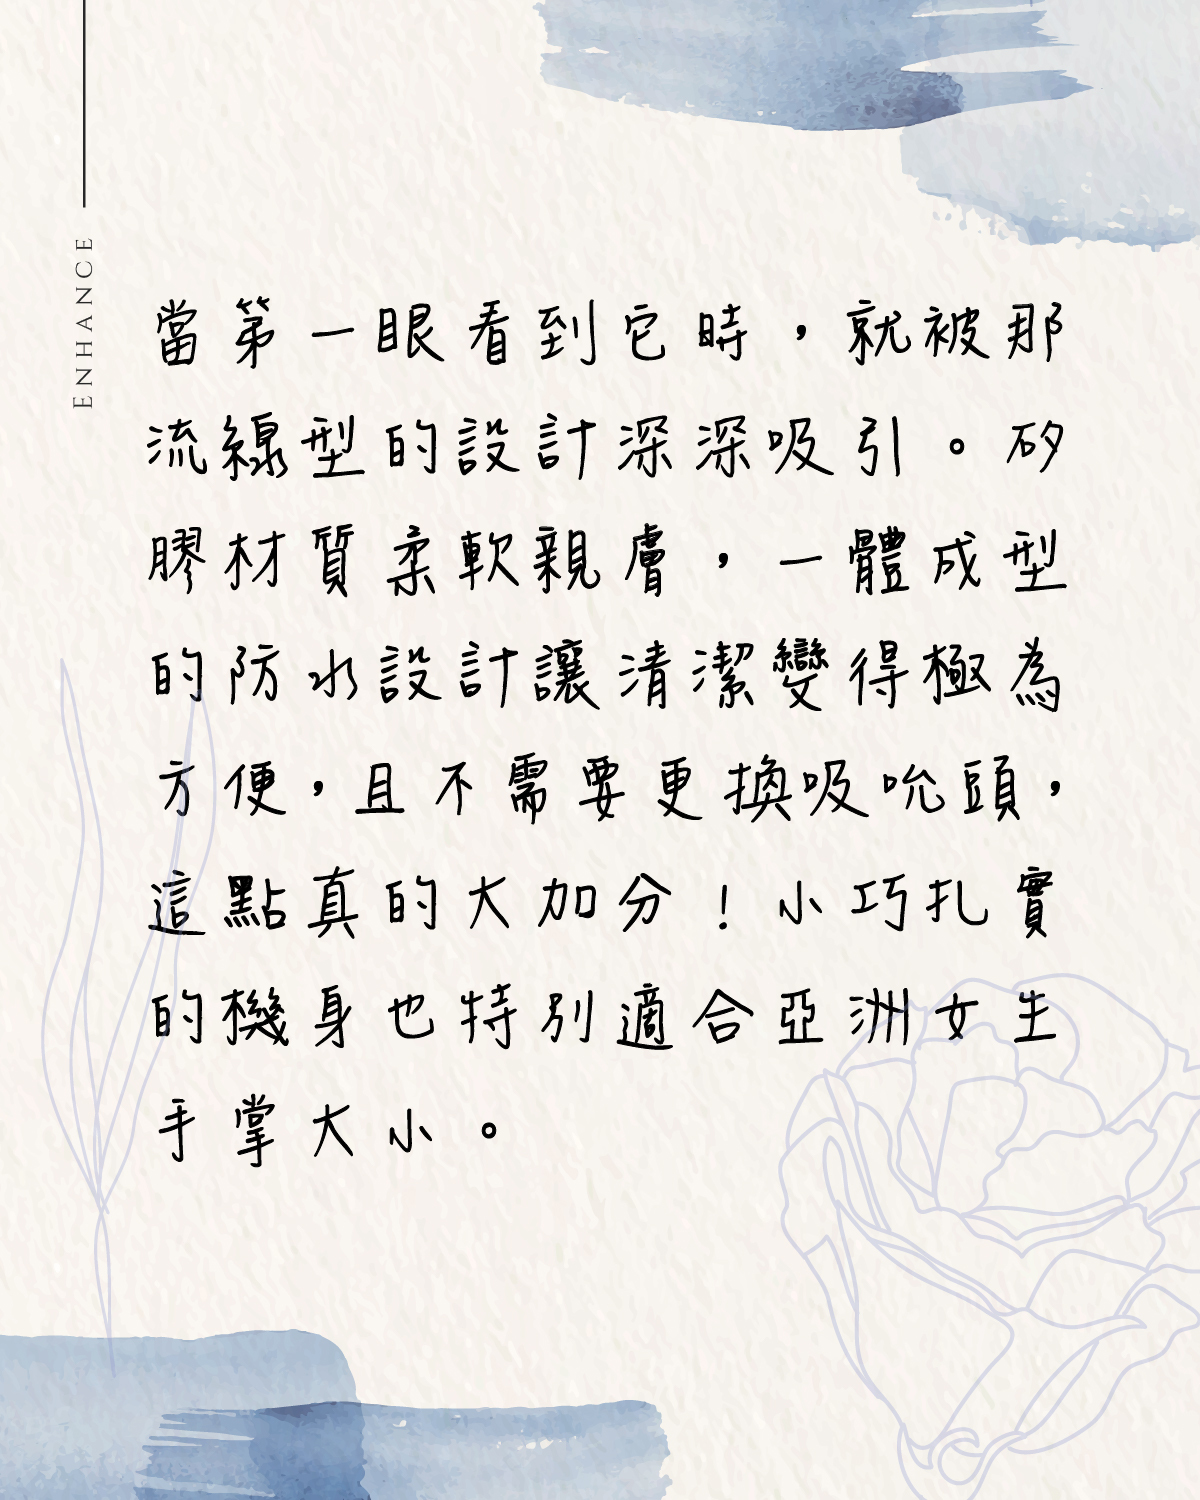 ENHANCE
當第一眼看到它時，就被那
流線型的設計深深吸引。矽
膠材質柔軟親膚，一體成型
的防水設計讓清潔變得極為
方便，且不需要更換吸吮頭，
這點真的大加分！小巧扎實
的機身也特別適合亞洲女生
手掌大小。